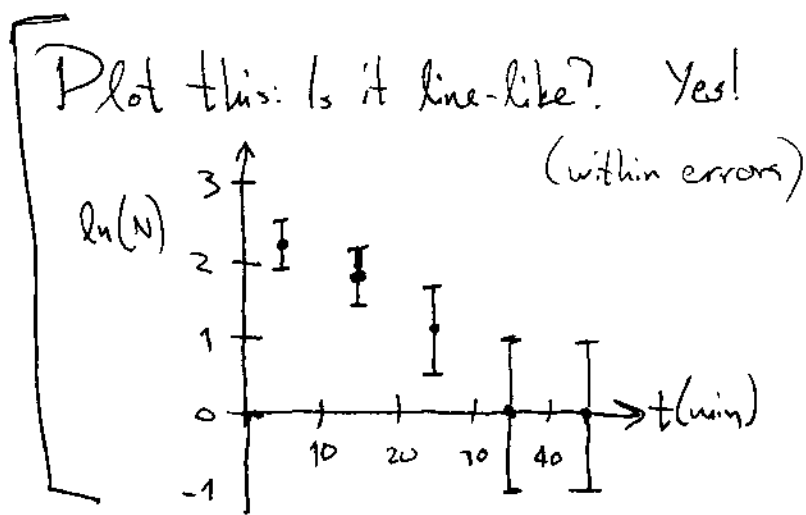 Plot this: Is it line-like? Yes!
(within errors)
3
ln(N)
2
1
0
t(min)
10 20 30 40
-1